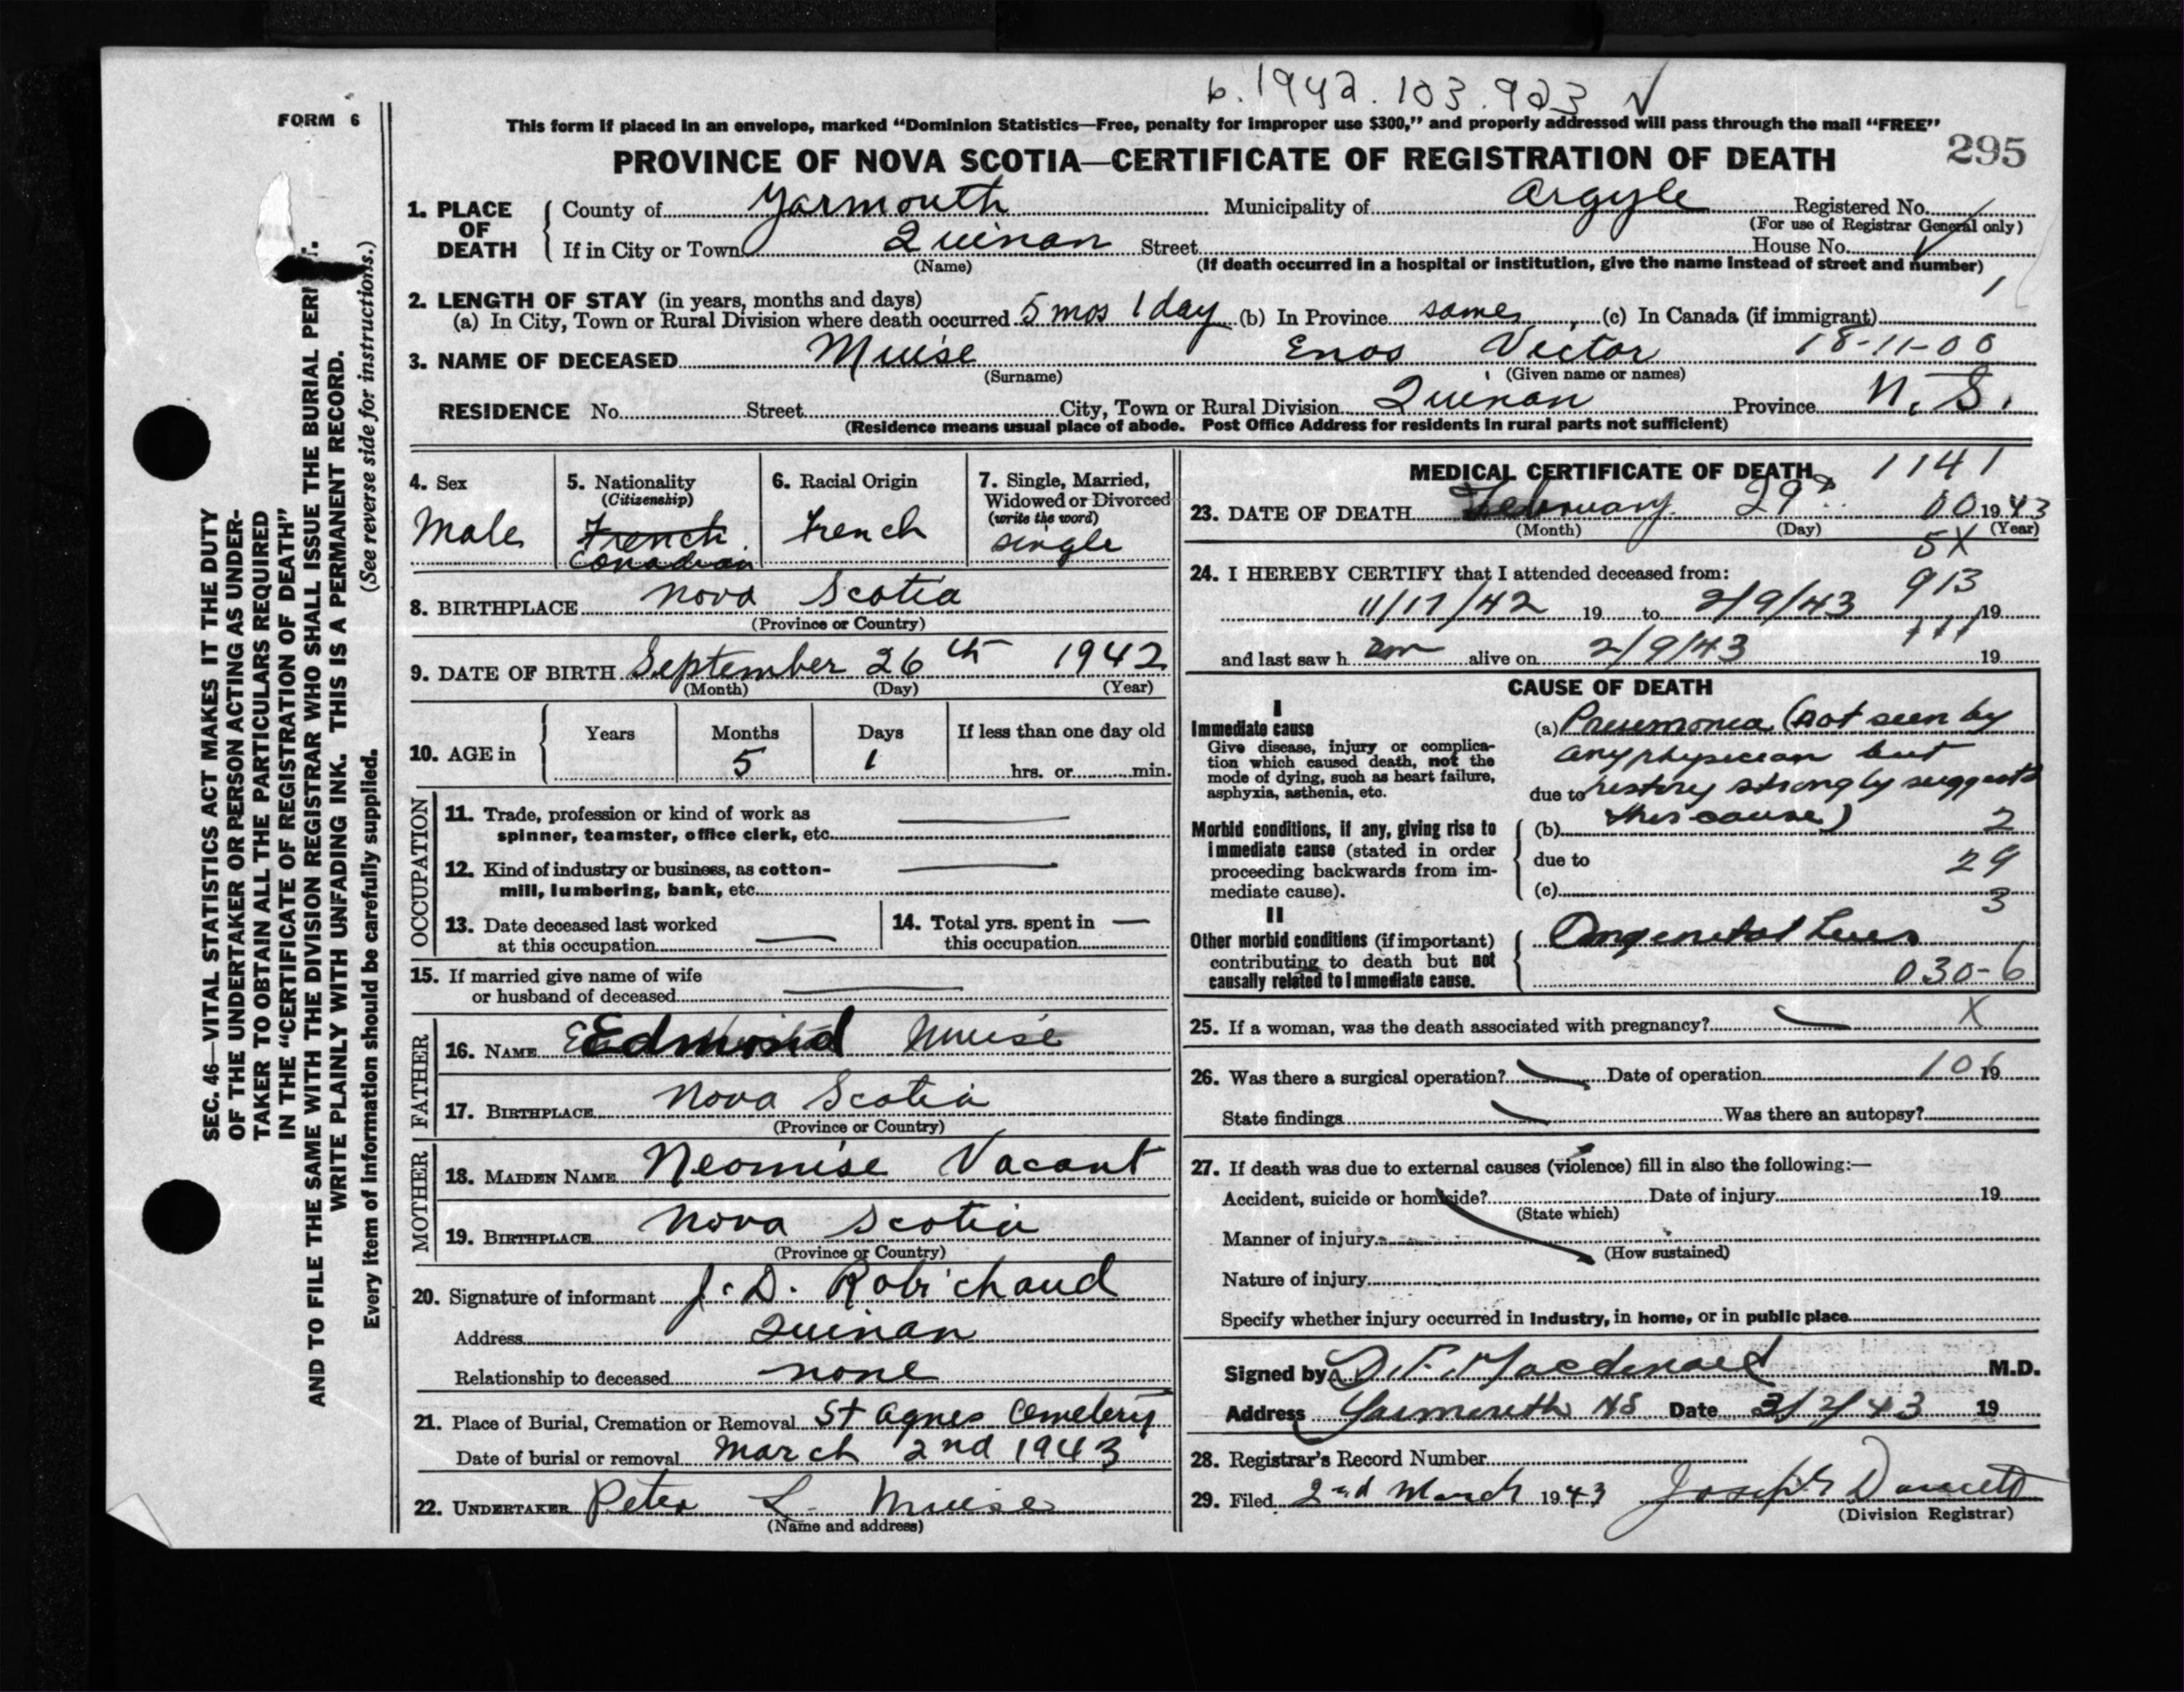 b. 1942. 103. 923 √
FORM 6
This form if placed in an envelope, marked “Dominion Statistics—Free, penalty for improper use $300,” and properly addressed will pass through the mail “FREE”
PROVINCE OF NOVA SCOTIA—CERTIFICATE OF REGISTRATION OF DEATH 295
1. PLACE OF DEATH
County of Yarmouth Municipality of Argyle Registered No.
(For use of Registrar General only)
If in City or Town Quinan Street House No.
(Name) (If death occurred in a hospital or institution, give the name instead of street and number)
2. LENGTH OF STAY (in years, months and days)
(a) In City, Town or Rural Division where death occurred 5 mos 1 day (b) In Province same (c) In Canada (if immigrant)
3. NAME OF DECEASED Muise Enos Victor 18-11-00
(Surname) (Given name or names)
RESIDENCE No. Street City, Town or Rural Division Quinan Province N. S.
(Residence means usual place of abode. Post Office Address for residents in rural parts not sufficient)
4. Sex
Male
5. Nationality
(Citizenship)
French
Canadian
6. Racial Origin
French
7. Single, Married,
Widowed or Divorced
(write the word)
single
8. BIRTHPLACE Nova Scotia
(Province or Country)
9. DATE OF BIRTH September 26 th 1942
(Month) (Day) (Year)
10. AGE in
Years Months Days If less than one day old
5 1 hrs. or min.
OCCUPATION
11. Trade, profession or kind of work as
spinner, teamster, office clerk, etc.
12. Kind of industry or business, as cotton-
mill, lumbering, bank, etc.
13. Date deceased last worked
at this occupation
14. Total yrs. spent in
this occupation
15. If married give name of wife
or husband of deceased
FATHER
16. NAME Edmond Muise
17. BIRTHPLACE Nova Scotia
(Province or Country)
MOTHER
18. MAIDEN NAME Neomise Vacant
19. BIRTHPLACE Nova Scotia
(Province or Country)
20. Signature of informant J. D. Robichaud
Address Quinan
Relationship to deceased none
21. Place of Burial, Cremation or Removal St Agnes Cemetery
Date of burial or removal March 2nd 1943
22. UNDERTAKER Peter L. Muise
(Name and address)
MEDICAL CERTIFICATE OF DEATH 1141
23. DATE OF DEATH February 00 1943
(Month) (Day) (Year)
5X
24. I HEREBY CERTIFY that I attended deceased from:
913
11/17/42 19 to 2/9/43 19
and last saw h alive on 2/9/43 19
CAUSE OF DEATH
I
Immediate cause
Give disease, injury or complica-
tion which caused death, not the
mode of dying, such as heart failure,
asphyxia, asthenia, etc.
(a) Pneumonia (not seen by
any physician but
due to history strongly suggests
this cause)
Morbid conditions, if any, giving rise to
immediate cause (stated in order
proceeding backwards from im-
mediate cause).
(b) 2
due to 29
(c) 3
II
Other morbid conditions (if important)
contributing to death but not
causally related to immediate cause.
Congenital Lues
030-6
25. If a woman, was the death associated with pregnancy? X
26. Was there a surgical operation? Date of operation 106 19
State findings Was there an autopsy?
27. If death was due to external causes (violence) fill in also the following:—
Accident, suicide or homicide? Date of injury 19
(State which)
Manner of injury
(How sustained)
Nature of injury
Specify whether injury occurred in industry, in home, or in public place
Signed by D. F. Macdonald M.D.
Address Yarmouth NS Date 3/2/43 19
28. Registrar's Record Number
29. Filed 2nd March 1943 Joseph Doucett
(Division Registrar)
SEC. 46—VITAL STATISTICS ACT MAKES IT THE DUTY
OF THE UNDERTAKER OR PERSON ACTING AS UNDER-
TAKER TO OBTAIN ALL THE PARTICULARS REQUIRED
IN THE “CERTIFICATE OF REGISTRATION OF DEATH”
AND TO FILE THE SAME WITH THE DIVISION REGISTRAR WHO SHALL ISSUE THE BURIAL
WRITE PLAINLY WITH UNFADING INK. THIS IS A PERMANENT RECORD.
Every item of information should be carefully supplied. (See reverse side for instructions.)